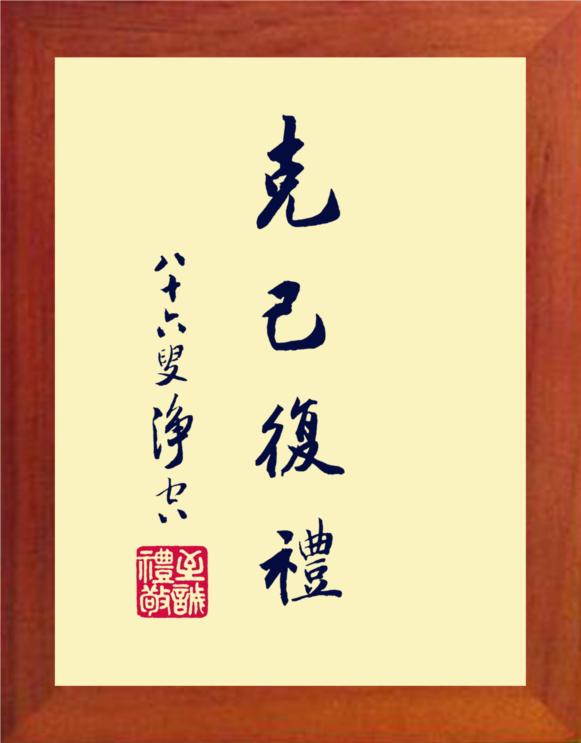 克己復禮
八十六叟淨空
至誠
禮敬